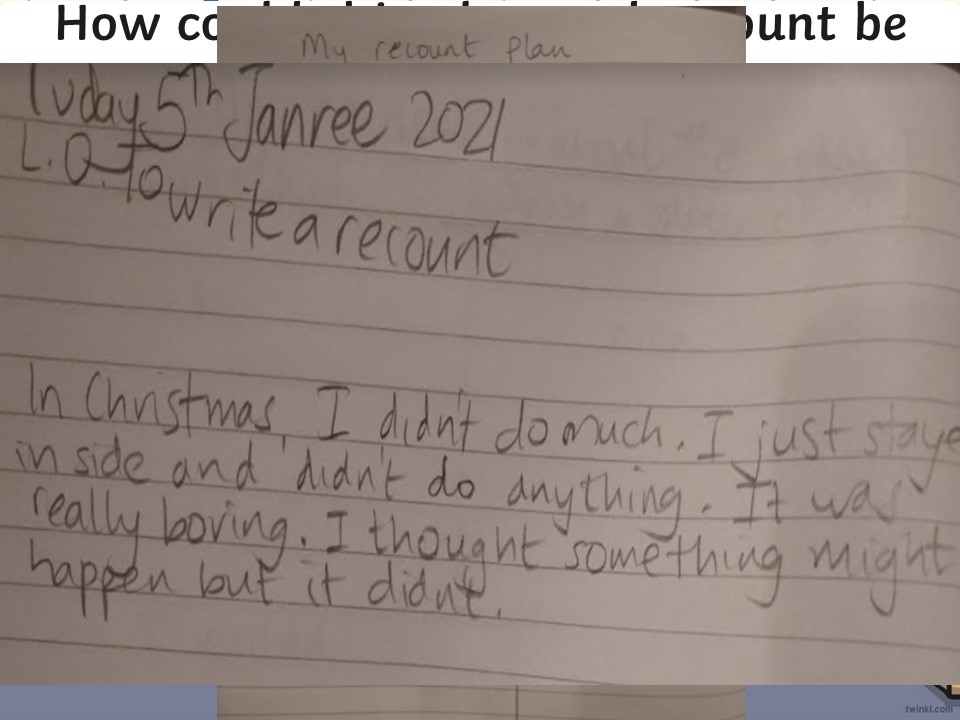 How co ount be
My recount plan
Tuday 5th Janree 2021
L.O. To write a recount
In Christmas, I didn't do much. I just staye
in side and didn't do anything. It was
really boring. I thought something might
happen but it didn't.
twinkl.com